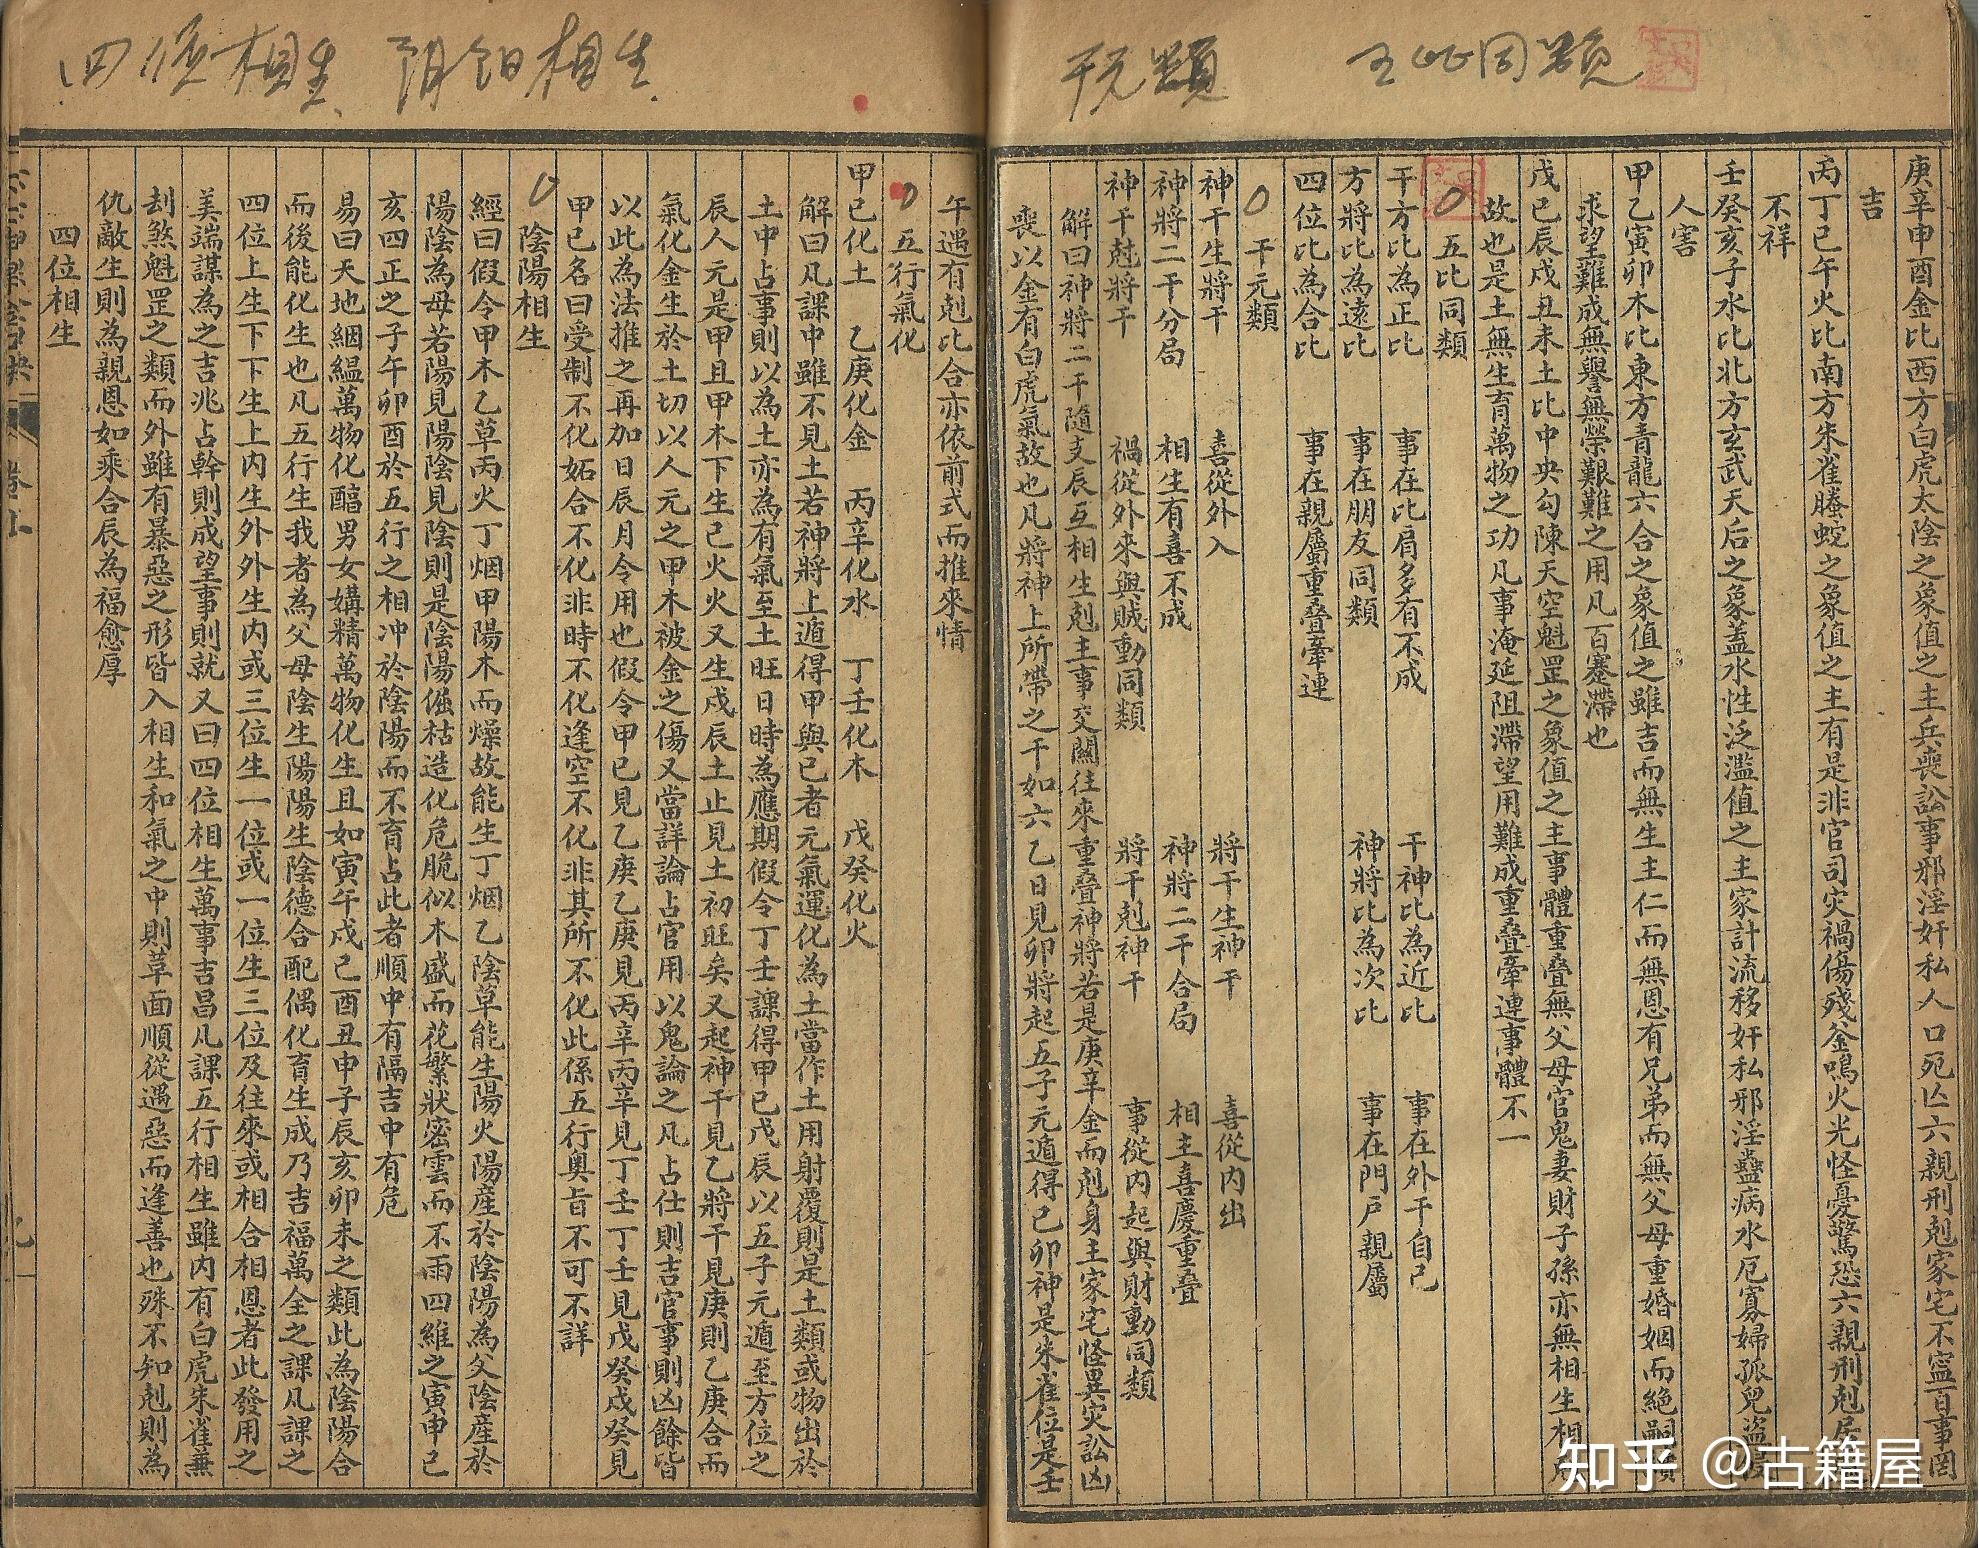 五比同類
干元類
四位相生
陰陽相生
庚辛申酉金比西方白虎太陰之象值之主兵喪訟事邪淫奸私人口死亡六親刑剋家宅不寧百事罔
吉
丙丁巳午火比南方朱雀螣蛇之象值之主有是非官司灾禍傷殘釜鳴火光怪憂驚恐六親刑剋居
不祥
壬癸亥子水比北方玄武天后之象蓋水性泛濫值之主家計流移奸私邪淫蠱病水厄寡婦孤兒盜
人害
甲乙寅卯木比東方青龍六合之象值之雖吉而無生主仁而無恩有兄弟而無父母重婚姻而絶嗣
求望難成無譽無榮艱難之用凡百蹇滯也
戊己辰戌丑未土比中央勾陳天空魁罡之象值之主事體重叠無父母官鬼妻財子孫亦無相生相
故也是土無生育萬物之功凡事淹延阻滯望用難成重叠牽連事體不一
五比同類
干方比為正比 事在比肩多有不成 干神比為近比 事在外干自己
方將比為遠比 事在朋友同類 神將比為次比 事在門戶親屬
四位比為合比 事在親屬重叠牽連
干元類
神干生將干 喜從外入 將干生神干 喜從內出
神將二干分局 相生有喜不成 神將二干合局 相主喜慶重叠
神干尅將干 禍從外來與賊動同類 將干剋神干 事從內起與財動同類
解曰神將二干隨支辰互相生剋主事交關往來重叠神將若是庚辛金而剋身主家宅怪異灾訟凶
喪以金有白虎氣故也凡將神上所帶之干如六乙日見卯將起五子元遁得己卯神是朱雀位是壬
午遇有剋比合亦依前式而推來情
五行氣化
甲己化土 乙庚化金 丙辛化水 丁壬化木 戊癸化火
解曰凡課中雖不見土若神將上遁得甲與己者元氣運化為土當作土用射覆則是土類或物出於
土中占事則以為土亦為有氣至土旺日時為應期假令丁壬課得甲己戊辰以五子元遁至方位之
辰人元是甲且甲木下生己火火又生戌辰土止見土初旺矣又起神干見乙將干見庚則乙庚合而
氣化金生於土切以人元之甲木被金之傷又當詳論占官用以鬼論之凡占仕則吉官事則凶餘皆
以此為法推之再加日辰月令用也假令甲己見乙庚乙庚見丙辛丙辛見丁壬丁壬見戊癸戊癸見
甲己名曰受制不化妬合不化非時不化逢空不化非其所不化此係五行奥旨不可不詳
陰陽相生
經曰假令甲木乙草丙火丁烟甲陽木而燥故能生丁烟乙陰草能生陽火陽産於陰陽為父陰産於
陽陰為母若陽見陽陰見陰則是陰陽偏枯造化危脆似木盛而花繁狀密雲而不雨四維之寅申巳
亥四正之子午卯酉於五行之相冲於陰陽而不育占此者順中有隔吉中有危
易曰天地絪縕萬物化醇男女媾精萬物化生且如寅午戌巳酉丑申子辰亥卯未之類此為陰陽合
而後能化生也凡五行生我者為父母陰生陽陽生陰德合配偶化育生成乃吉福萬全之課凡課之
四位上生下下生上內生外外生內或三位生一位或一位生三位及往來或相合相恩者此發用之
美端謀為之吉兆占幹則成望事則就又曰四位相生萬事吉昌凡課五行相生雖內有白虎朱雀蕪
刦煞魁罡之類而外雖有暴惡之形皆入相生和氣之中則草面順從遇惡而逢善也殊不知剋則為
仇敵生則為親恩如乘合辰為福愈厚
四位相生
知乎 @古籍屋